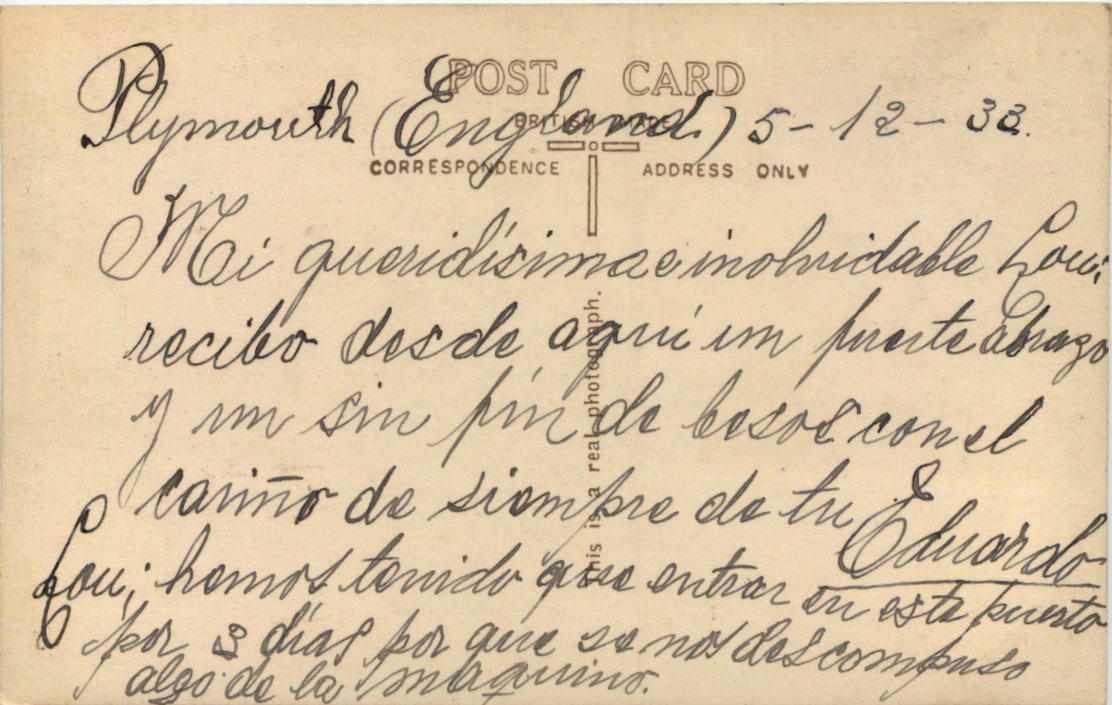 POST CARD
Plymouth (England.) 5-12-33.
BRITISH MADE
CORRESPONDENCE ADDRESS ONLY
Mi queridísima e inolvidable Lou;
recibo desde aquí un fuerte abrazo
y un sin fin de besos con el
cariño de siempre de tu Eduardo
Lou; hemos tenido que entrar en este puerto
por 3 días por que se nos descompuso
algo de la maquina.
This is a real photograph.